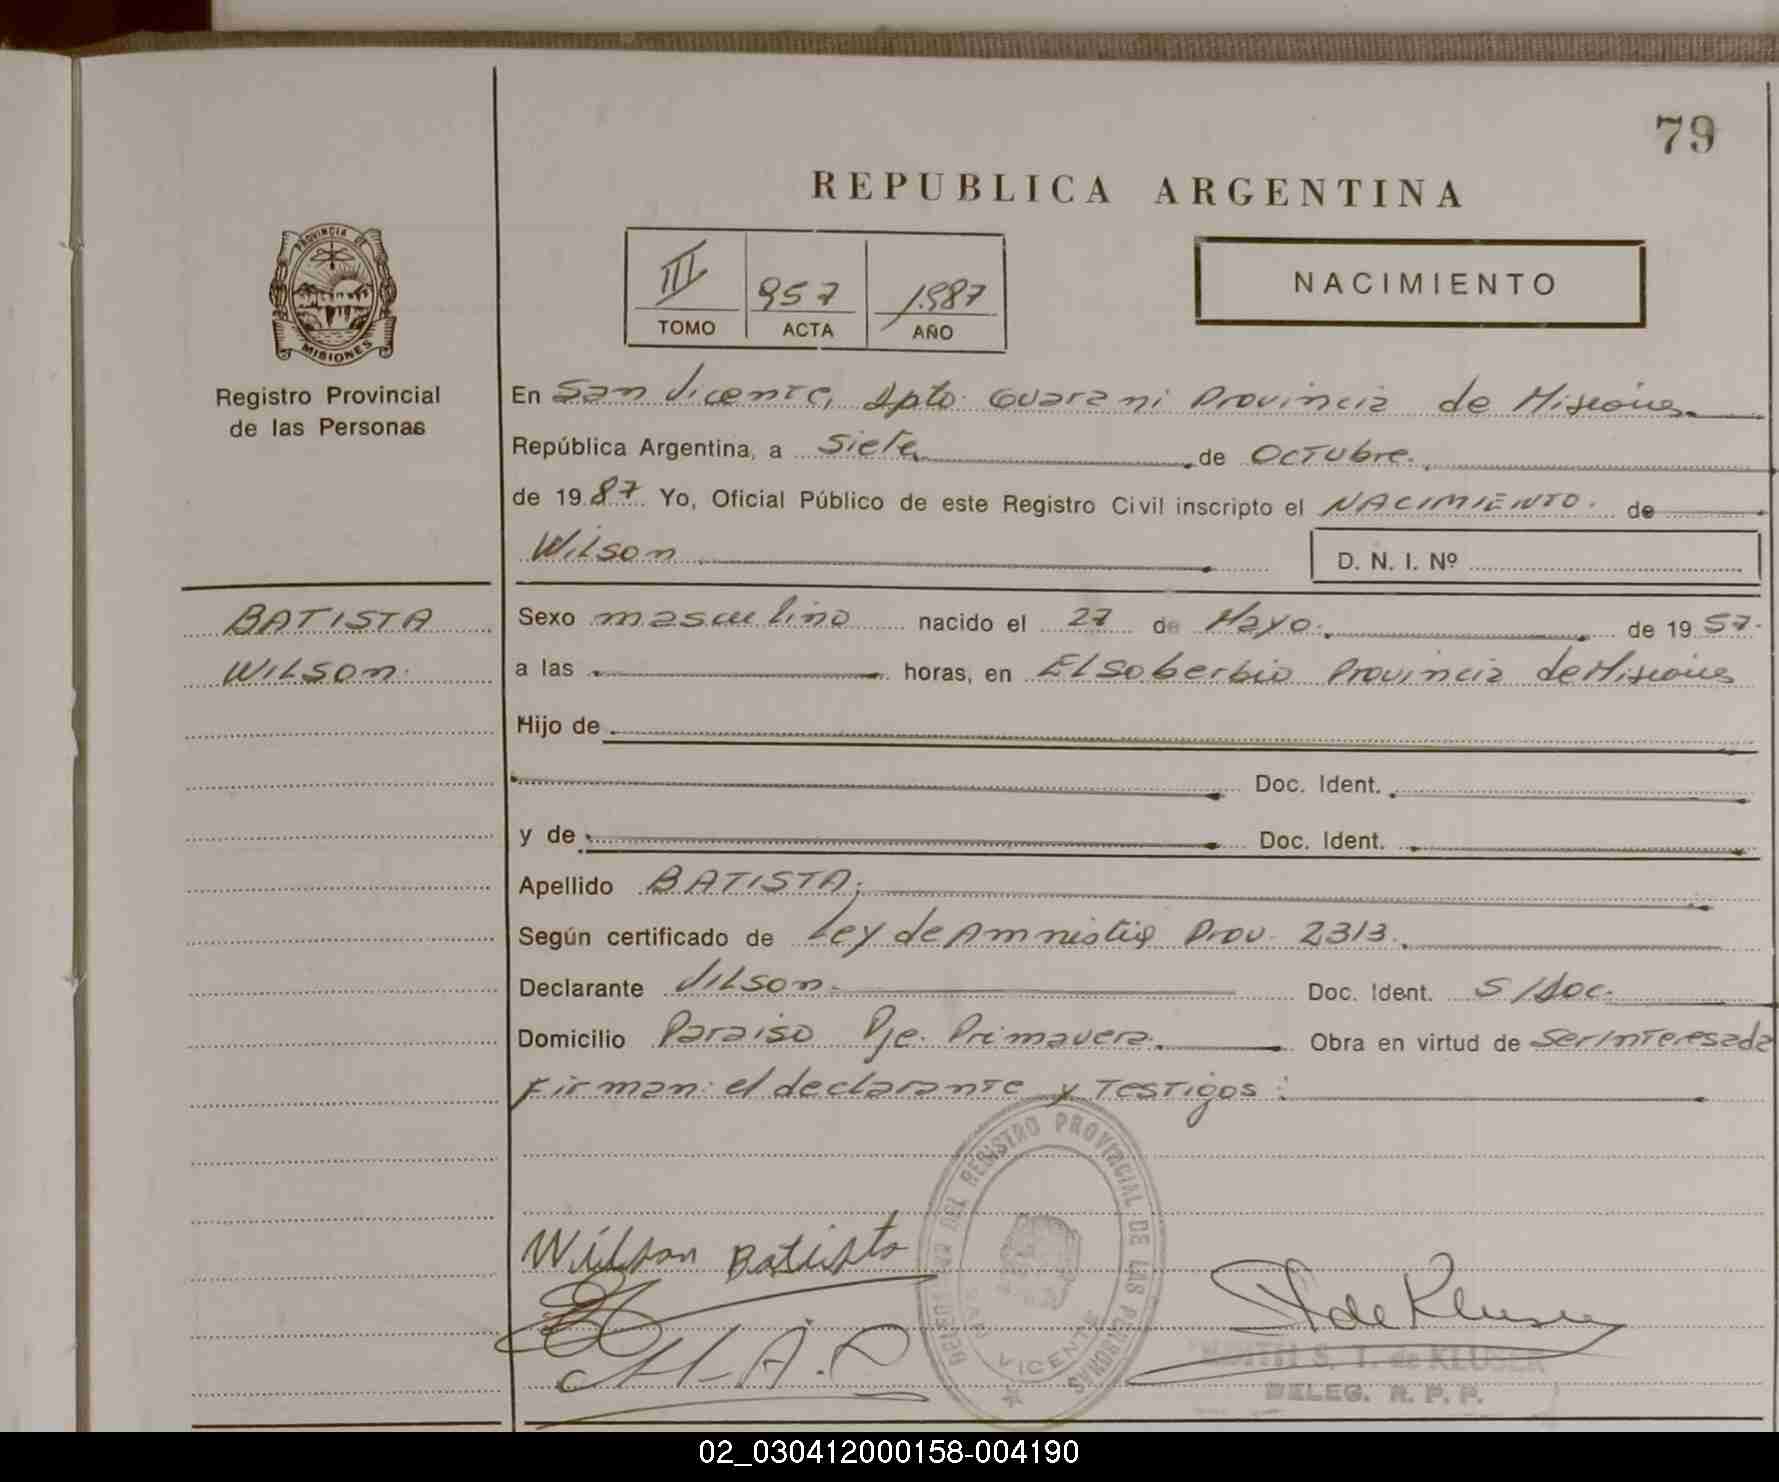 79
REPUBLICA ARGENTINA
PROVINCIA DE
MISIONES
III 957 1987
TOMO ACTA AÑO
NACIMIENTO
Registro Provincial
de las Personas
En San Vicente, Dpto. Guarani Provincia de Misiones
República Argentina, a Siete de Octubre.
de 1987 Yo, Oficial Público de este Registro Civil inscripto el NACIMIENTO. de
Wilson D. N. I. Nº
BATISTA
WILSON.
Sexo masculino nacido el 27 de Mayo. de 1957.
a las horas, en El Soberbio Provincia de Misiones
Hijo de
Doc. Ident.
y de Doc. Ident.
Apellido BATISTA.
Según certificado de Ley de Amnistia Prov. 2313.
Declarante Vilson. Doc. Ident. S/Doc.
Domicilio Paraiso Pje. Primavera. Obra en virtud de ser interesada
Firman: el declarante y Testigos:
DEL REGISTRO PROVINCIAL DE LAS PERSONAS
SAN VICENTE
Wilson Batista
de Kluser
S. T. de KLUSER
DELEG. R. P. P.
02_030412000158-004190